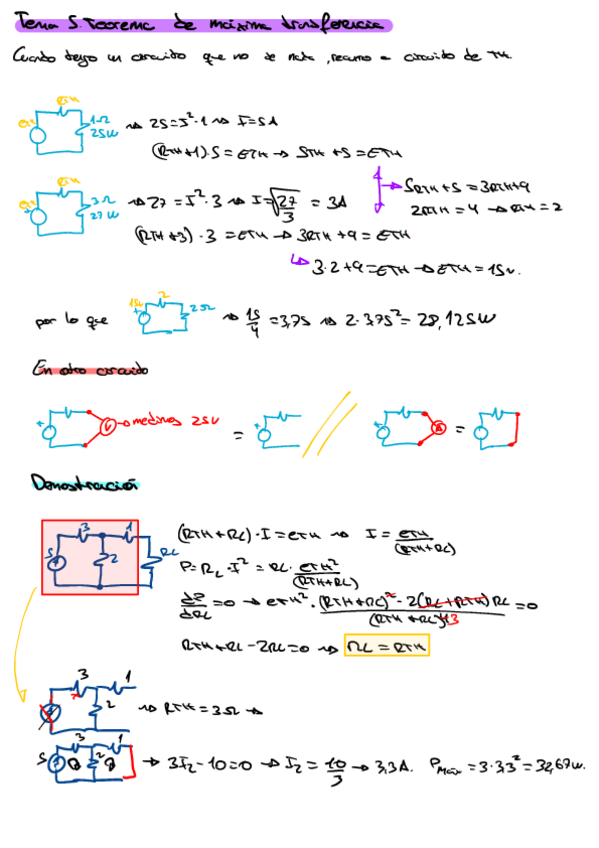 Tema 5. Teorema de máxima transferencia
Cuando tengo un circuito que no se nada, recurro a circuito de TH.
RTH
1Ω
25W
→ 25 = I²·1 → I = 5A
(RTH+1)·5 = ETH → 5TH + 5 = ETH
RTH
3Ω
27W
→ 27 = I²·3 → I = √27/3 = 3A
→ 5RTH + 5 = 3RTH + 9
2RTH = 4 → RTH = 2
(RTH+3)·3 = ETH → 3RTH + 9 = ETH
↳ 3·2+9 = ETH → ETH = 15v.
por lo que
15v
2
2Ω
→ 15/4 = 3,75 → 2·3,75² = 28,125W
En otro circuito
V → medimos 25V
=
A
=
Demostración
5
3
1
2
RL
(RTH+RL)·I = ETH → I = ETH/(RTH+RL)
P = RL·I² = RL·ETH²/(RTH+RL)
dP/dRL = 0 → ETH²·(RTH+RL)² - 2(RL+RTH)RL/(RTH+RL)⁴3 = 0
RTH + RL - 2RL = 0 → RL = RTH
3
1
2
→ RTH = 3Ω →
5
3
1
2
→ 3I2 - 10 = 0 → I2 = 10/3 → 3,3A. PMax = 3·3,3² = 32,67w.